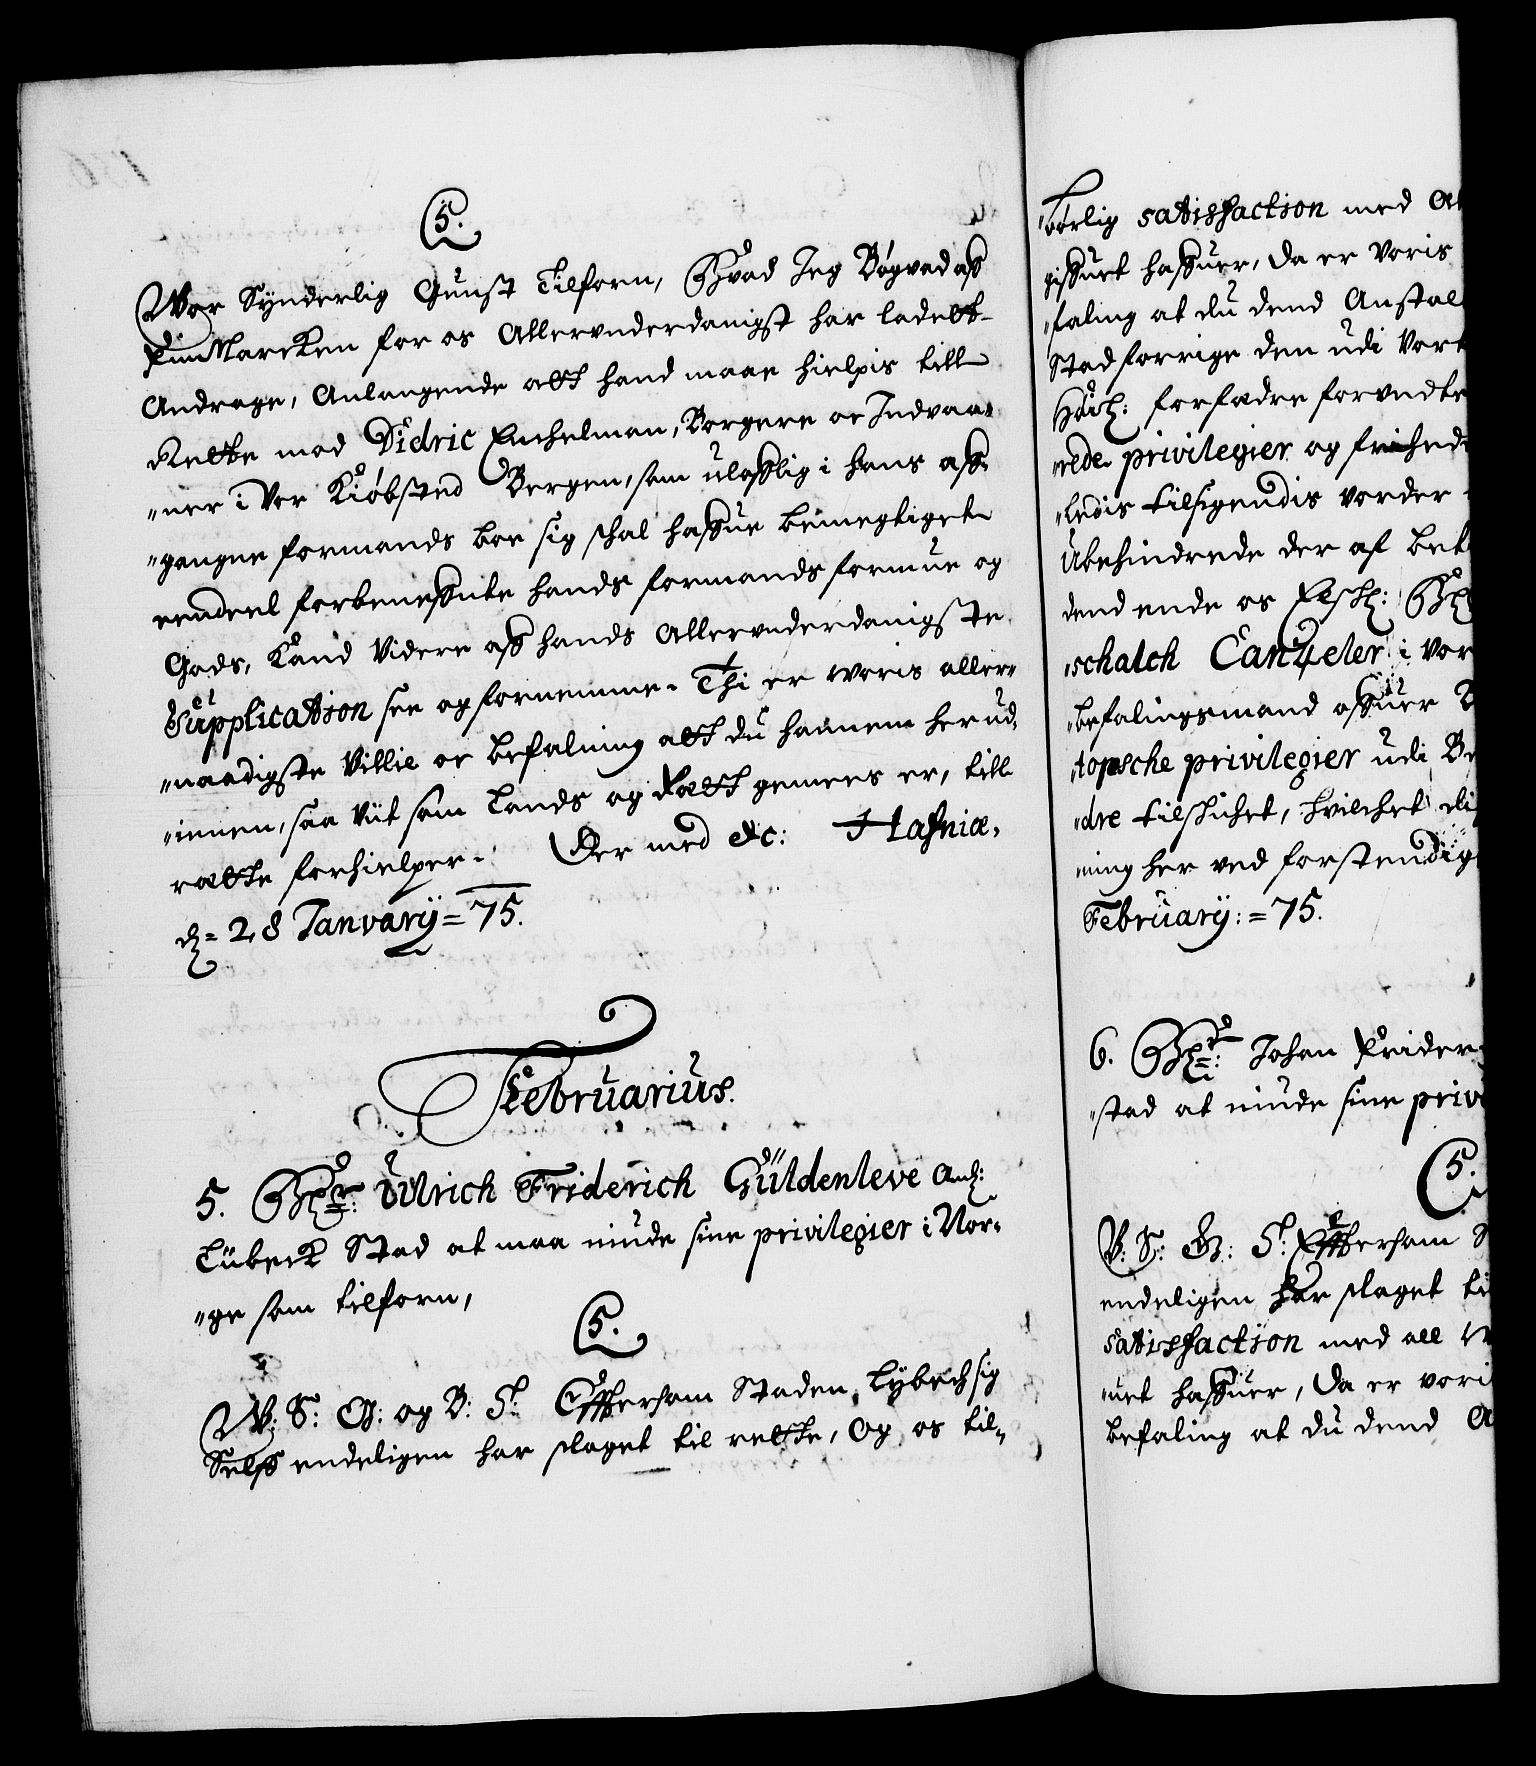 C5.
Wor Synderlig Gunst Tilforn, Hvad Jeg Bøgvad aff
FinMarcken for os Allervnderdanigst har ladett
Andrage, Anlangende att hand maae hielpis till
Rette mod Didric Enchelman, Borgere oc Indvaa„
„ner i Vor Kiøbsted Bergen, som ulofflig i hans aff„
„gangne formands boe sig schal haffue bemegtiget
eendeel forbeneffnte hands formands formue og
Gods, Kand Videre aff hands Allervnderdanigste
Supplication see og fornemme. Thi er woris aller„
„naadigste Villie oc befalning att du hannem herud„
„innen, saa vit som Lands og Rætt gemees er, till
rætte forhielper. Der med &c: Hafniæ,
d= 28 Janvarij = 75.
Februarius.
5. Hr: Ulrich Friderich Güldenleve Anl:
Lübeck Stad at maa niude sine privilegier i Nor„
„ge som tilforn,
C5.
W: S: G: og B: T: Effterson Staden Lybech sig
Selff endeligen har slaget til rette, Og os til„
børlig satisfaction med
giffuet haffuer, da er voris
„faling at du dend Anstal
Stad forrige den udi Vort
Høil: forfædre forvndte
„rede privilegier og frihed
„ledis tilsigendis vorder
Ubehindrede der af bet
dend ende os Elsk:
„schalch Cantzeler i vor
„befalingsmand offuer
„topsche privilegier udi Be
„dre tilskichet, hvilchet di
„ning her ved forstendig
February: = 75.
6. Hr: Johan Frider
„stad at niude sine privi
C5.
V: S: G: T: Effterson
endeligen har slaget ti
satisfaction med all
„uet haffuer, da er vori
befaling at du dend